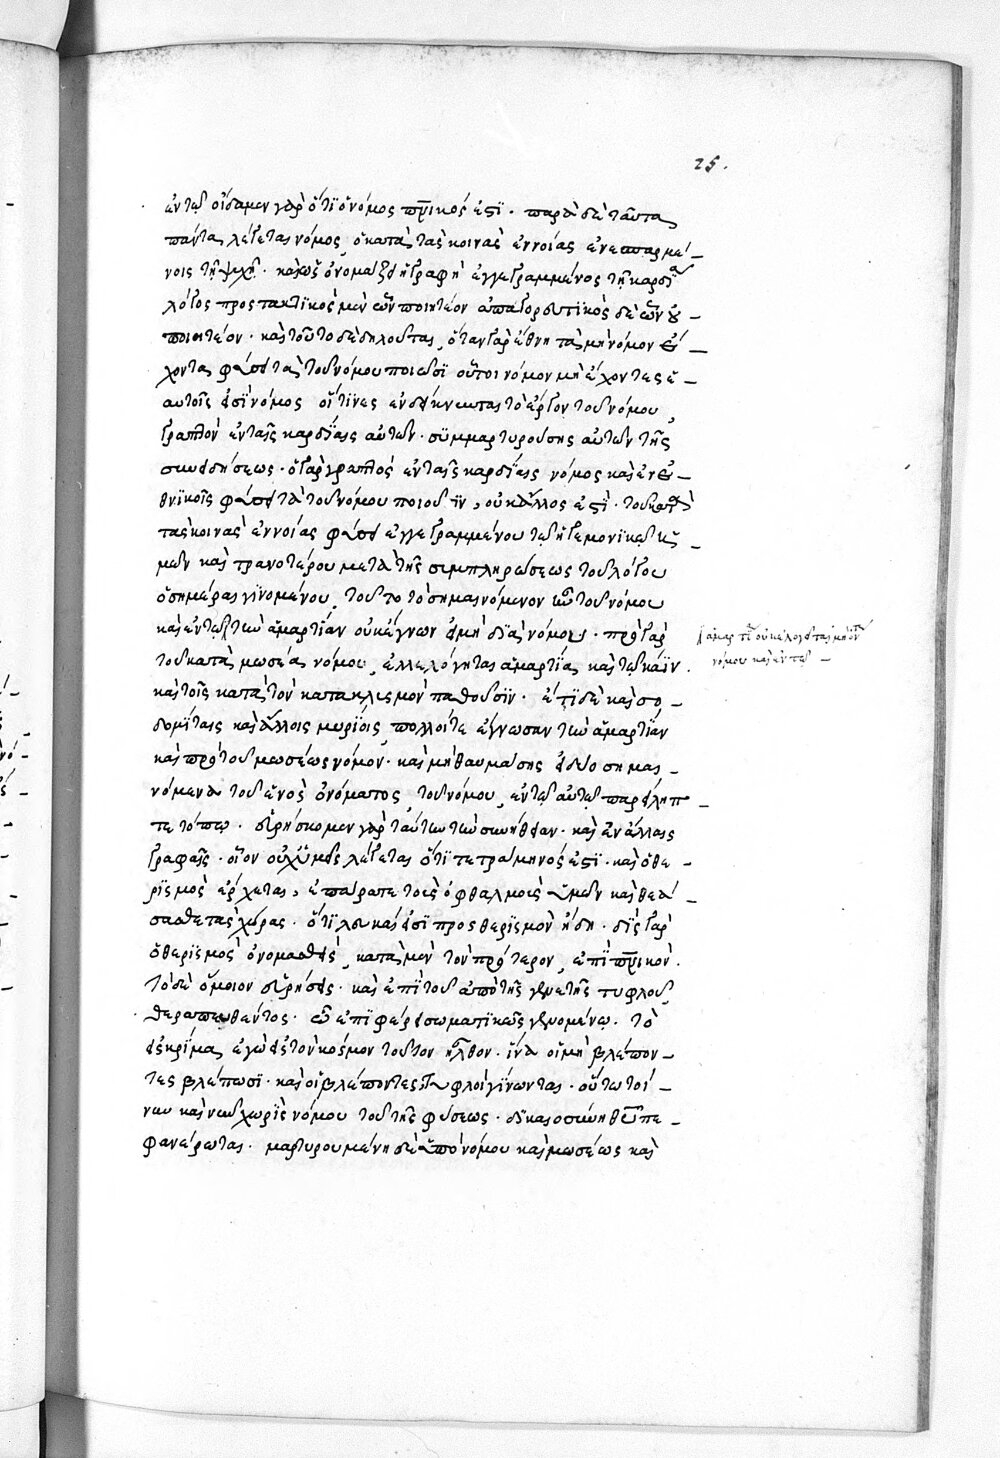 25.
ἐν τῶ οἴδαμεν γὰρ ὅτι ὁ νόμος πνικός ἐστι. παρὰ δὲ ταῦτα
πάντα λέγεται νόμος ὁ κατὰ τὰς κοινὰς ἐννοίας ἐνεσπαρμέ-
νοις τῆ ψυχῆ. καὶ ὡς ὀνομάζει ἡ γραφὴ ἐγγεγραμμένος τῆ καρδία
λόγος προστακτικὸς μὲν ὧν ποιητέον ἀπαγορευτικὸς δὲ ὧν οὐ
ποιητέον. καὶ τοῦτο δὲ δηλοῦται, ὅταν γὰρ ἔθνη τὰ μὴ νόμον ἔ-
χοντα φύσει τὰ τοῦ νόμου ποιῶσι οὗτοι νόμον μὴ ἔχοντες ἑ-
αυτοῖς εἰσὶ νόμος οἵτινες ἐνδείκνυνται τὸ ἔργον τοῦ νόμου,
γραπτὸν ἐν ταῖς καρδίαις αὐτῶν. συμμαρτυρούσης αὐτῶν τῆς
συνειδήσεως. ὁ γὰρ γραπτὸς ἐν ταῖς καρδίαις νόμος καὶ ἐν ἐ-
θνικοῖς φύσει τὰ τοῦ νόμου ποιοῦσιν, οὐκ ἄλλος ἐστὶ. τοῦ κατὰ
τὰς κοινὰς ἐννοίας φύσει ἐγγεγραμμένου τῶ ἡγεμονικῶ ἡ-
μῶν καὶ τρανοτέρου μετὰ τῆς συμπληρώσεως τοῦ λόγου
ὁσημέραι γινομένου, τοῦτο τὸ σημαινόμενον ἦν τοῦ νόμου
καὶ ἐν τῶ τὴν ἁμαρτίαν οὐκ ἔγνων εἰ μὴ διὰ νόμου. πρὸ γὰρ
τοῦ κατὰ μωσέα νόμου, ἐλλελόγηται ἁμαρτία, καὶ τῶ κάϊν.
καὶ τοῖς κατὰ τὸν κατακλυσμὸν παθοῦσιν. ἔτι δὲ καὶ σο-
δομίταις καὶ ἄλλοις μυρίοις, πολλοί τε ἔγνωσαν τὴν ἁμαρτίαν
καὶ πρὸ τοῦ μωσέως νόμον. καὶ μὴ θαυμάσης εἰ δύο σημαι-
νόμενα τοῦ ἑνὸς ὀνόματος, τοῦ νόμου, ἐν τῶ αὐτῶ παρείληπ-
ται τόπω. εὑρήσκομεν γὰρ ταύτην τὴν συνήθειαν. καὶ ἐν ἄλλαις
γραφαῖς. οἷον οὐχ ὑμεῖς λέγεται ὅτι τετράμηνός ἐστι. καὶ ὁ θε-
ρισμὸς ἔρχεται, ἐπάρατε τοὺς ὀφθαλμοὺς ὑμῶν καὶ θεά-
σασθε τὰς χώρας. ὅτι λευκαί εἰσι πρὸς θερισμὸν ἤδη. δὶς γὰρ
ὁ θερισμὸς ὀνομασθεὶς, κατὰ μὲν τὸν πρότερον, ἐπὶ πνικόν.
τὸ δὲ ὅμοιον εὑρήσεις. καὶ ἐπὶ τοῦ ἀπὸ τῆς γενετῆς τυφλοῦ,
θεραπευθέντος. ὧ ἐπιφέρει σωματικῶς γενομένω. τὸ
εἰς κρίμα ἐγὼ εἰς τὸν κόσμον τοῦτον ἦλθον. ἵνα οἱ μὴ βλέπον-
τες βλέπωσι. καὶ οἱ βλέποντες τυφλοὶ γίνωνται. οὕτω τοί-
νυν καὶ νῦν χωρὶς νόμου τοῦ τῆς φύσεως. δικαιοσύνη θυ πε-
φανέρωται. μαρτυρουμένη δὲ ἀπὸ νόμου καὶ μωσέως καὶ
ἁμαρτία οὐκ ἐλογεῖται μὴ ὄντος
νόμου καὶ ἐν τῶ -